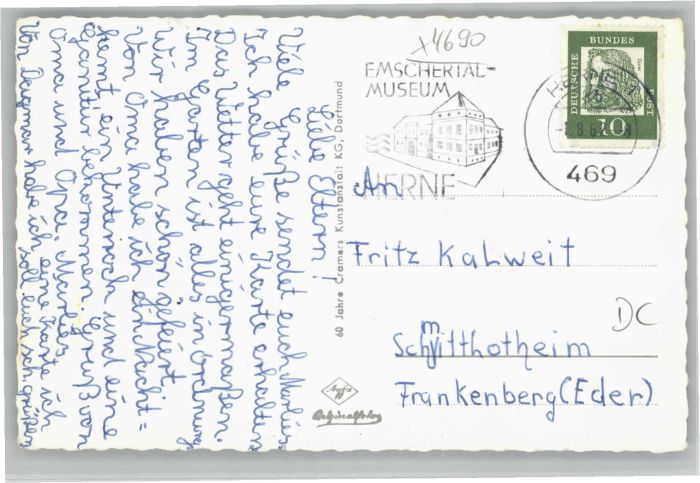 Liebe Eltern!
Viele Grüße sendet euch Marlies
Ich habe eure Karte erhalten
Das Wetter geht einigermaßen.
Im Garten ist alles in Ordnung
Wir haben schön gefeiert,
Von Oma habe ich ein Nacht=
hemt ein Unterrock und eine
Garnitur bekommen. Gruß von
Oma und Opa. Marlies
Von Dagmar habe ich eine Karte ich
soll euch sch. grüßen
60 Jahre Cramers Kunstanstalt KG, Dortmund
Agfa
Originalfoto
+4690
EMSCHERTAL-
MUSEUM
HERNE
DEUTSCHE BUNDESPOST
10
469
An
Fritz Kalweit
Schmitthotheim
Frankenberg(Eder)
DC